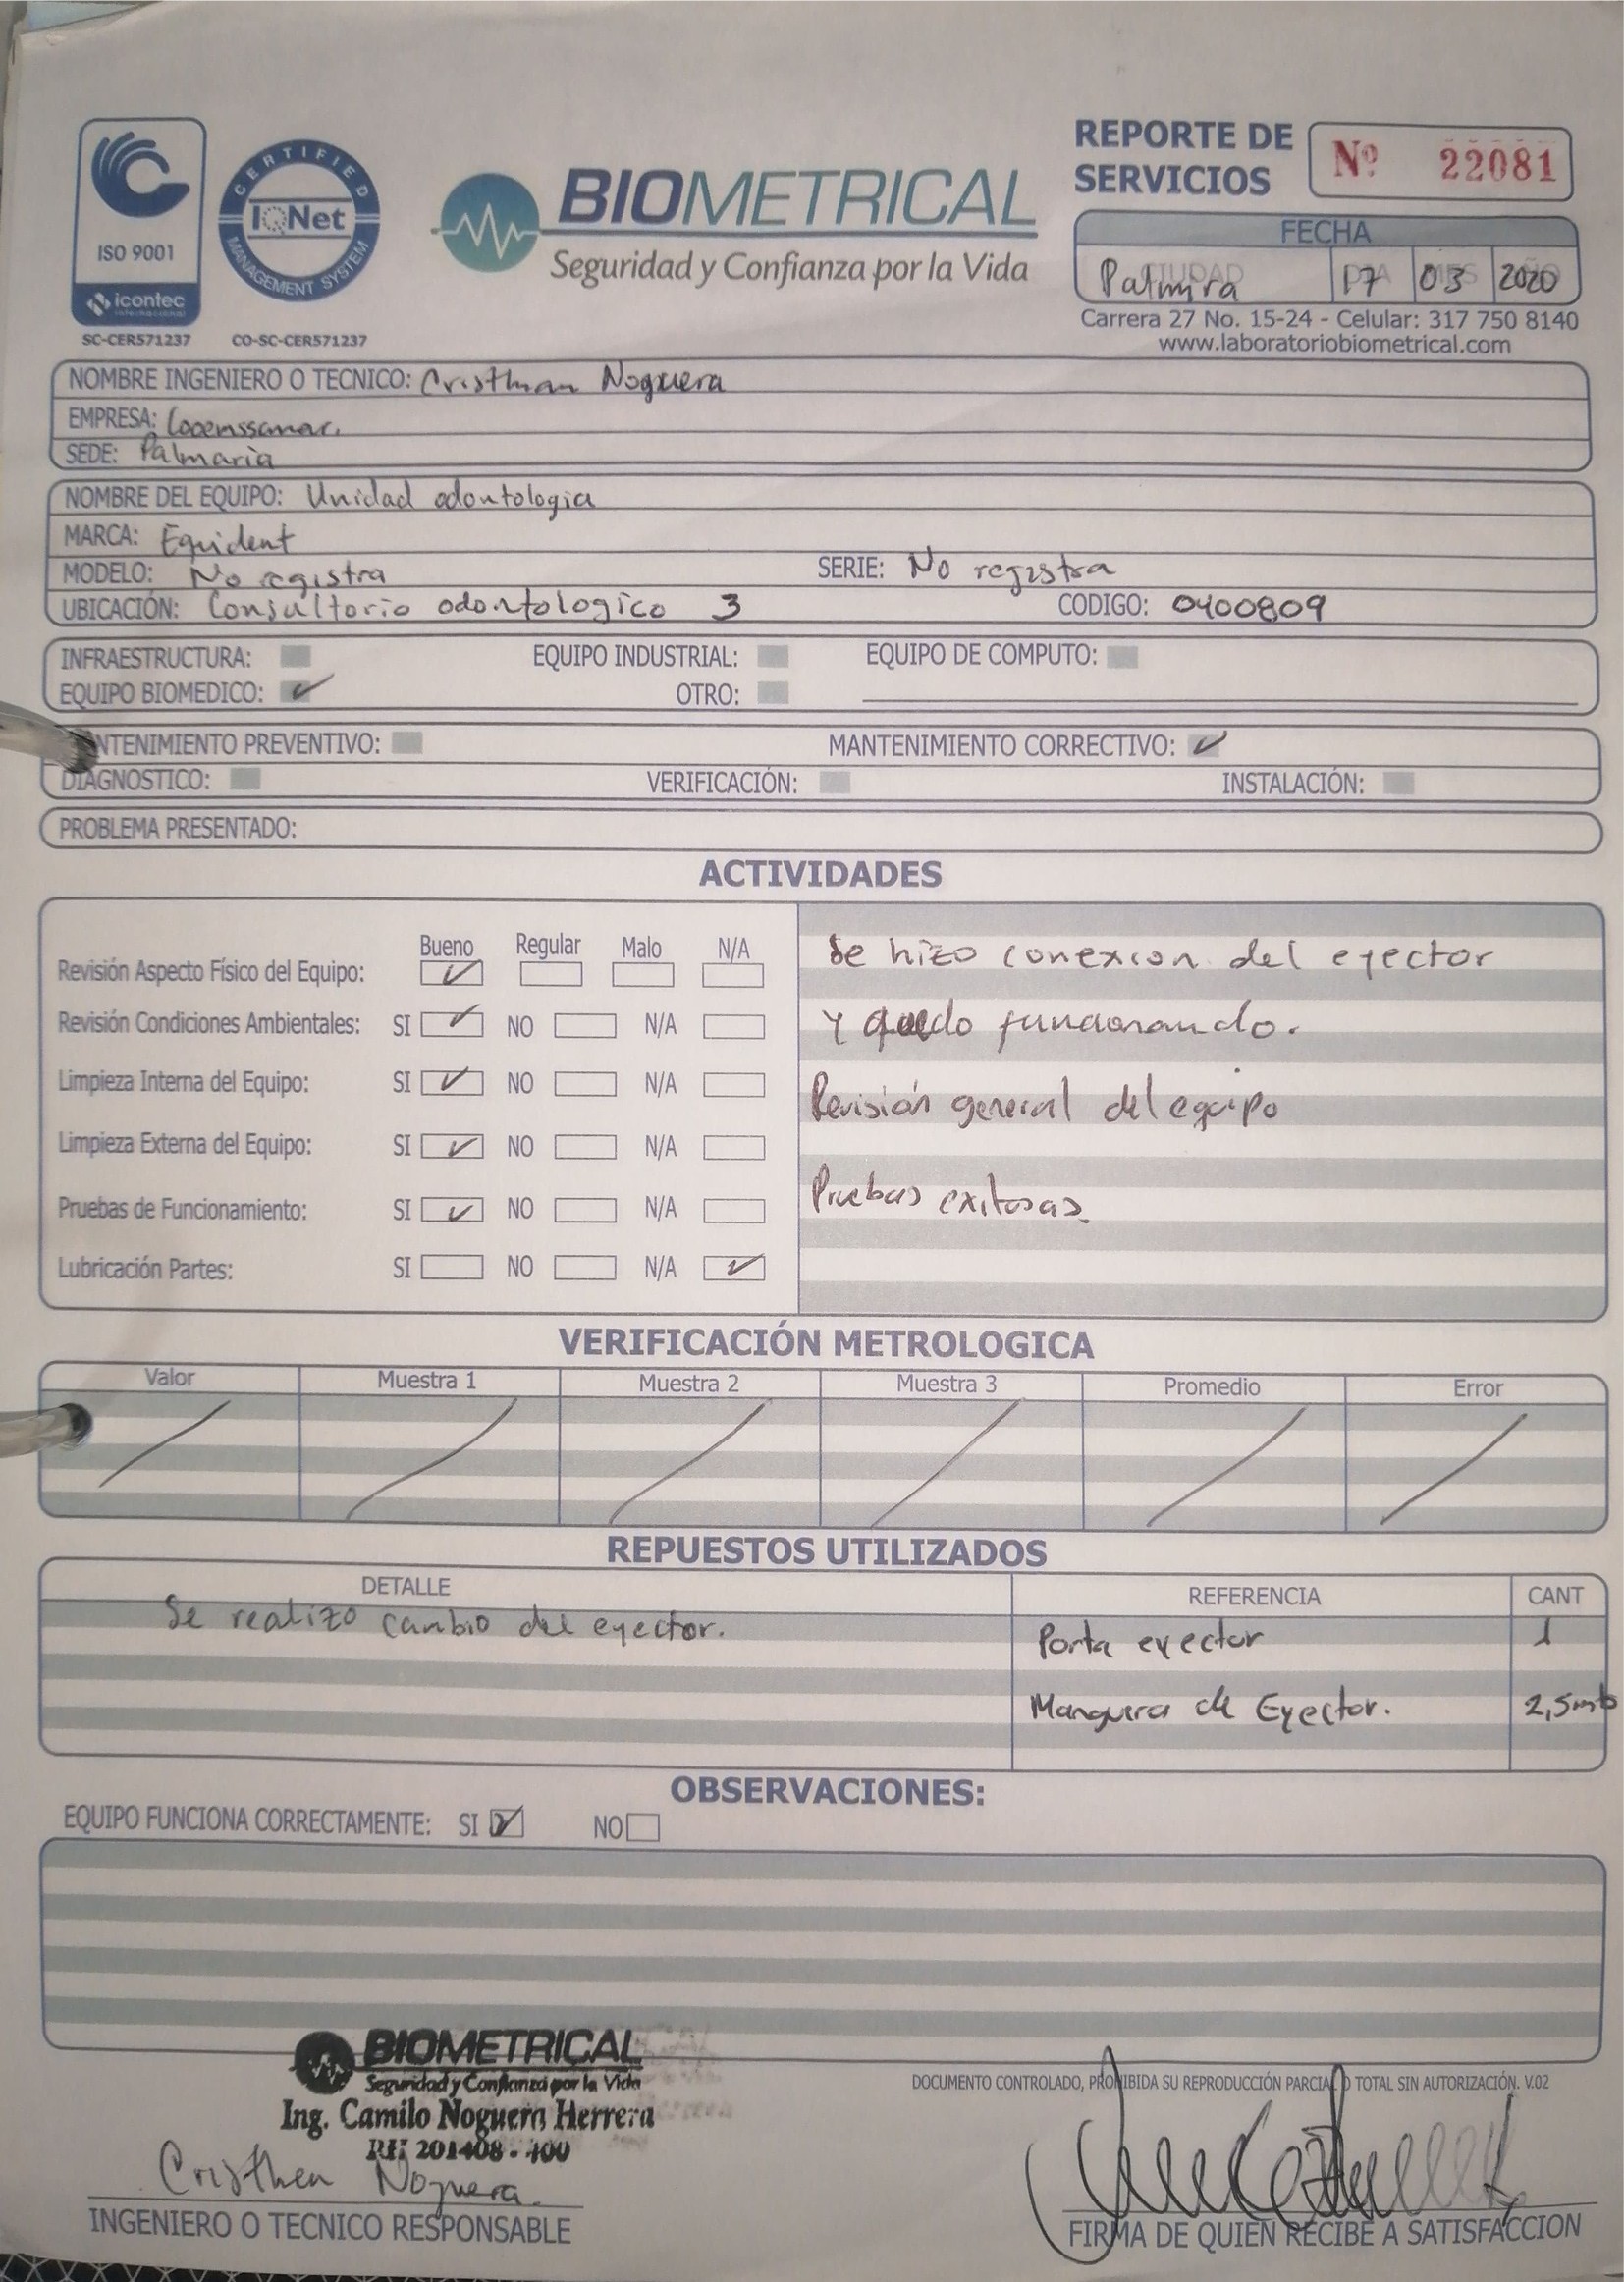 REPORTE DE SERVICIOS
Nº 22081
ISO 9001
icontec
SC-CER571237
CERTIFIED
IQNet
MANAGEMENT SYSTEM
CO-SC-CER571237
BIOMETRICAL
Seguridad y Confianza por la Vida
FECHA
CIUDAD DIA MES AÑO
Palmira 17 03 2020
Carrera 27 No. 15-24 - Celular: 317 750 8140
www.laboratoriobiometrical.com
NOMBRE INGENIERO O TECNICO: Cristhian Noguera
EMPRESA:
SEDE: Palmaria
NOMBRE DEL EQUIPO: Unidad odontologia
MARCA: Equident
MODELO: No registra SERIE: No registra
UBICACIÓN: Consultorio odontologico 3 CODIGO: 0400809
INFRAESTRUCTURA: EQUIPO INDUSTRIAL: EQUIPO DE COMPUTO:
EQUIPO BIOMEDICO: ✓ OTRO:
NTENIMIENTO PREVENTIVO: MANTENIMIENTO CORRECTIVO: ✓
DIAGNOSTICO: VERIFICACIÓN: INSTALACIÓN:
PROBLEMA PRESENTADO:
ACTIVIDADES
Bueno Regular Malo N/A
Revisión Aspecto Físico del Equipo: ✓
Revisión Condiciones Ambientales: SI ✓ NO N/A
Limpieza Interna del Equipo: SI ✓ NO N/A
Limpieza Externa del Equipo: SI ✓ NO N/A
Pruebas de Funcionamiento: SI ✓ NO N/A
Lubricación Partes: SI NO N/A ✓
Se hizo conexion del eyector
y quedo funcionando.
Revisión general del equipo
Pruebas exitosas.
VERIFICACIÓN METROLOGICA
Valor Muestra 1 Muestra 2 Muestra 3 Promedio Error
REPUESTOS UTILIZADOS
DETALLE REFERENCIA CANT
Se realizo cambio del eyector.
Porta eyector 1
Manguera de Eyector. 2,5mts
OBSERVACIONES:
EQUIPO FUNCIONA CORRECTAMENTE: SI ✓ NO
BIOMETRICAL
Seguridad y Confianza por la Vida
Ing. Camilo Noguera Herrera
RH 201408 - 400
DOCUMENTO CONTROLADO, PROHIBIDA SU REPRODUCCIÓN PARCIAL O TOTAL SIN AUTORIZACIÓN. V.02
Cristhen Noguera
INGENIERO O TECNICO RESPONSABLE
FIRMA DE QUIEN RECIBE A SATISFACCION